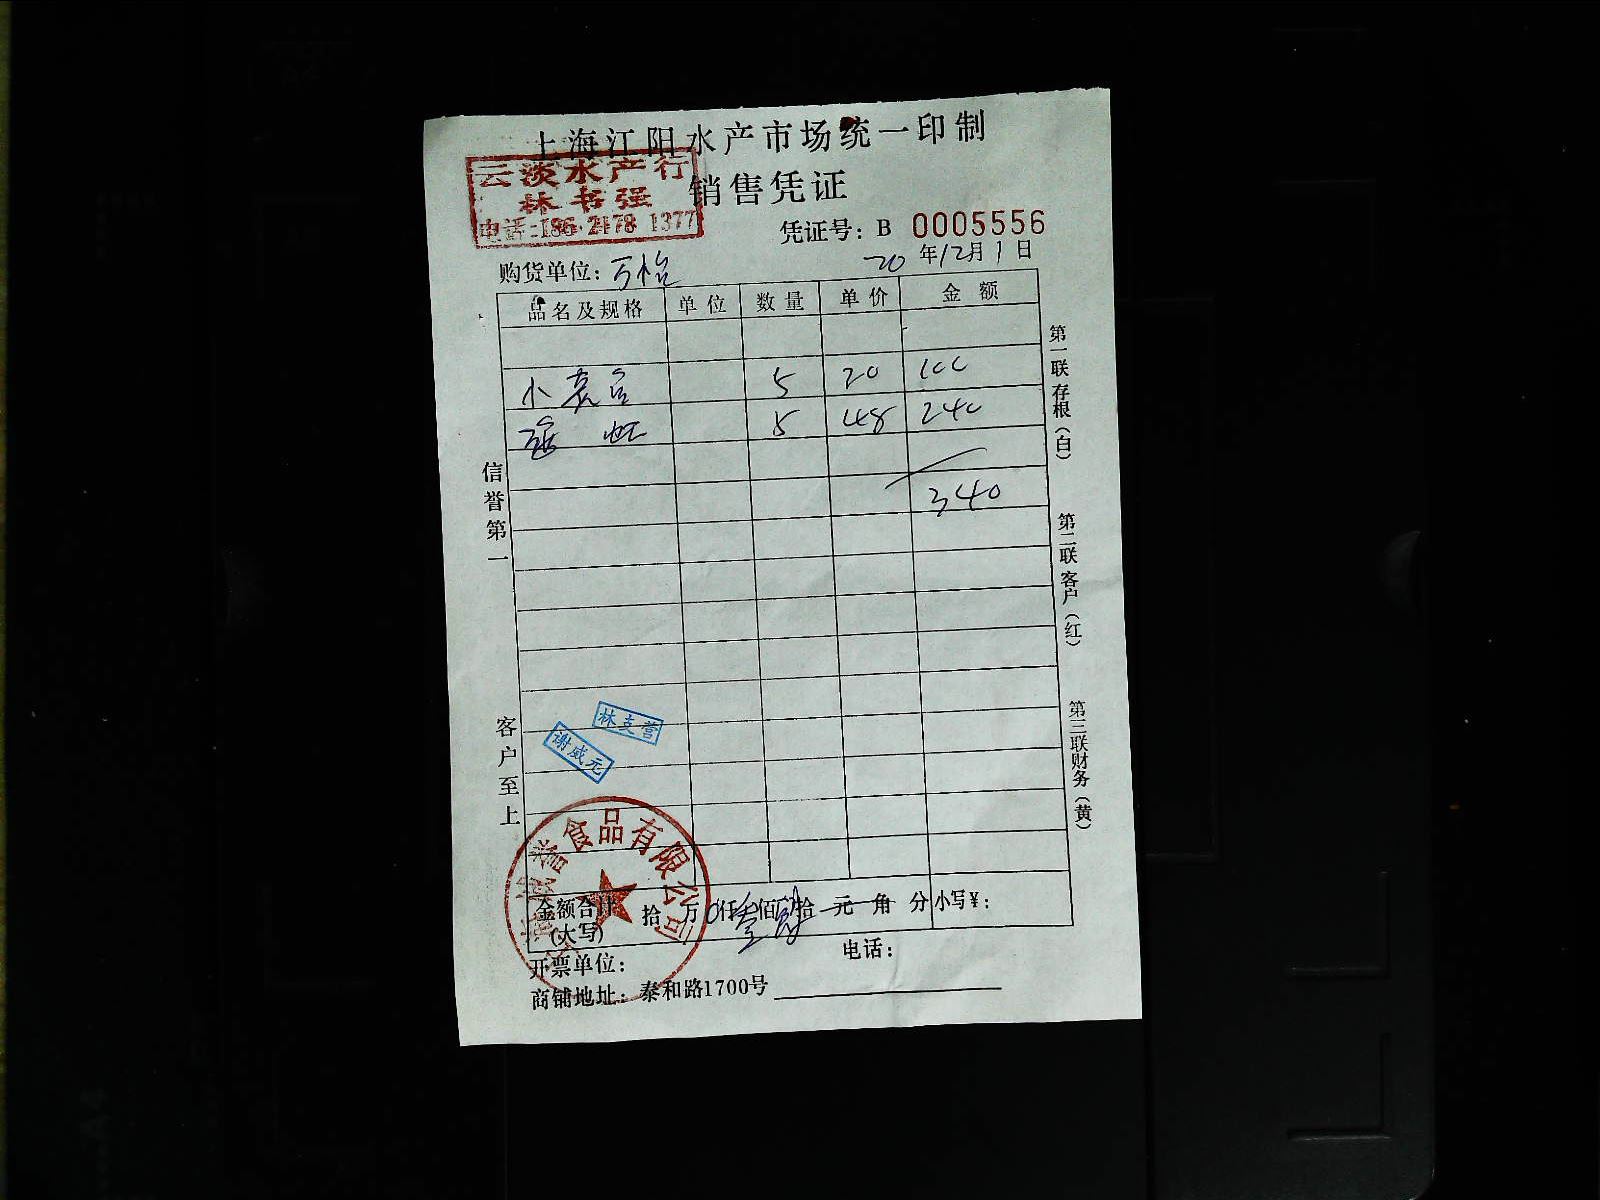 上海江阳水产市场统一印制
云淡水产行
林书强
电话:186·2178 1377
销售凭证
凭证号: B 0005556
20年12月1日
购货单位: 万怡
品名及规格 单位 数量 单价 金额
小 5 20 100
5 48 240
340
信誉第一
客户至上
第一联 存根（白）
第二联 客户（红）
第三联 财务（黄）
林支营
谢威元
食品有限公司
金额合计(大写) 拾 万 仟 佰 拾 元 角 分 小写¥:
开票单位:
电话:
商铺地址: 泰和路1700号